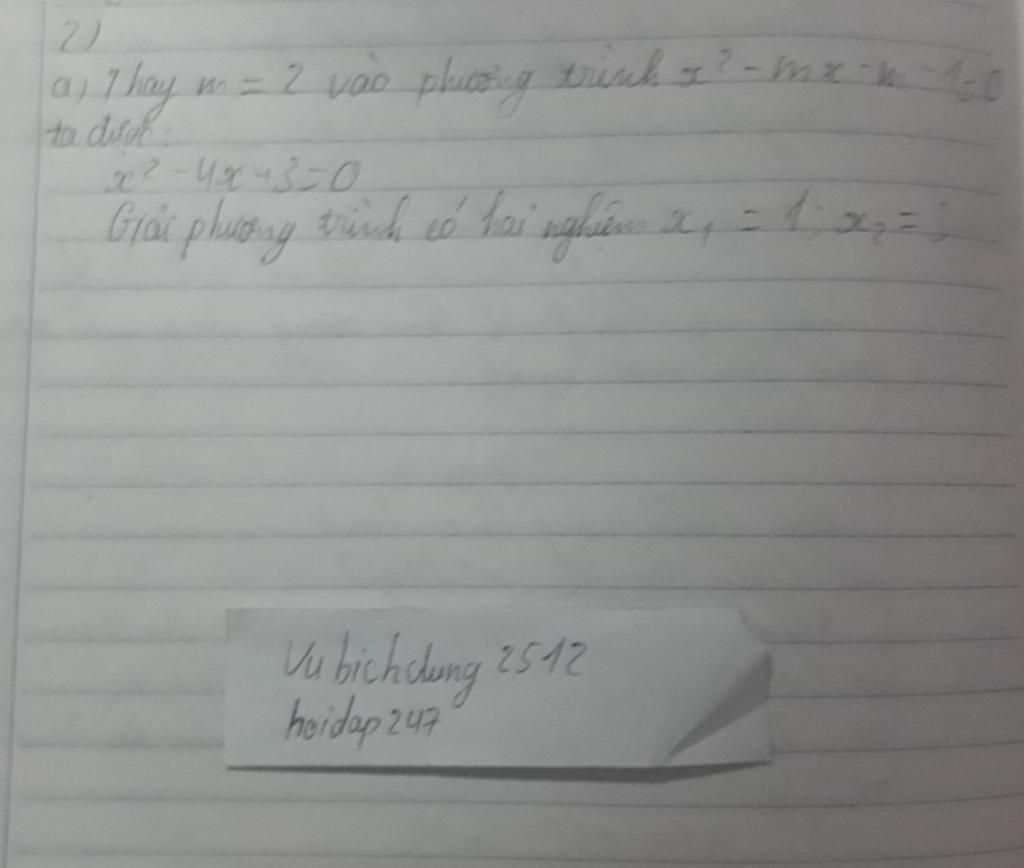 2)
a) Thay m = 2 vào phương trình x² - mx - m - 1 = 0
ta được:
x² - 4x - 3 = 0
Giải phương trình có hai nghiệm x₁ = 1; x₂ =
Vubichdung 2512
hoidap247